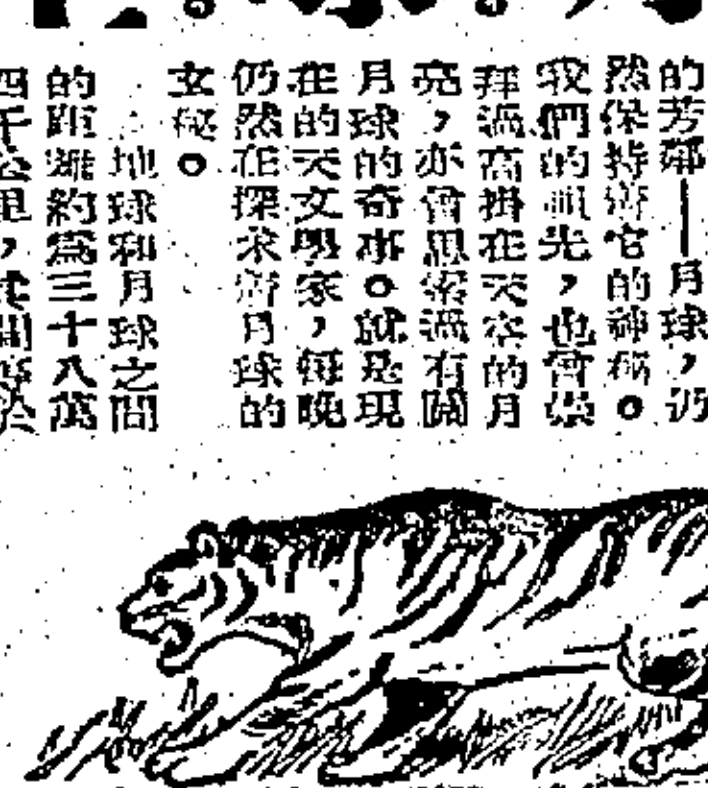 的芳鄰——月球，仍
然保持着它的神秘。
我們的祖先，也曾崇
拜過高掛在天空的月
亮，亦曾思索過有關
月球的奇事。就是現
在的天文學家，每晚
仍然在探求着月球的
玄秘。
地球和月球之間
的距離約為三十八萬
四千公里，